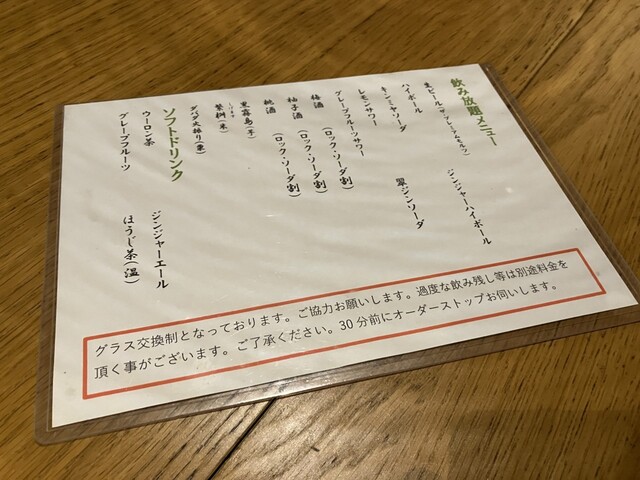 飲み放題メニュー
生ビール(ザ・プレアムモルツ)
ハイボール
ジンジャーハイボール
キンミヤソーダ
翠ジンソーダ
レモンサワー
グレープフルーツサワー
梅酒 (ロック・ソーダ割)
柚子酒 (ロック・ソーダ割)
桃酒 (ロック・ソーダ割)
黒霧島(芋)
繁桝(米)
ダバダ火振り(栗)
ソフトドリンク
ウーロン茶
ジンジャーエール
グレープフルーツ
ほうじ茶(温)
グラス交換制となっております。ご協力お願いします。過度な飲み残し等は別途料金を
頂く事がございます。ご了承ください。30分前にオーダーストップお伺いします。